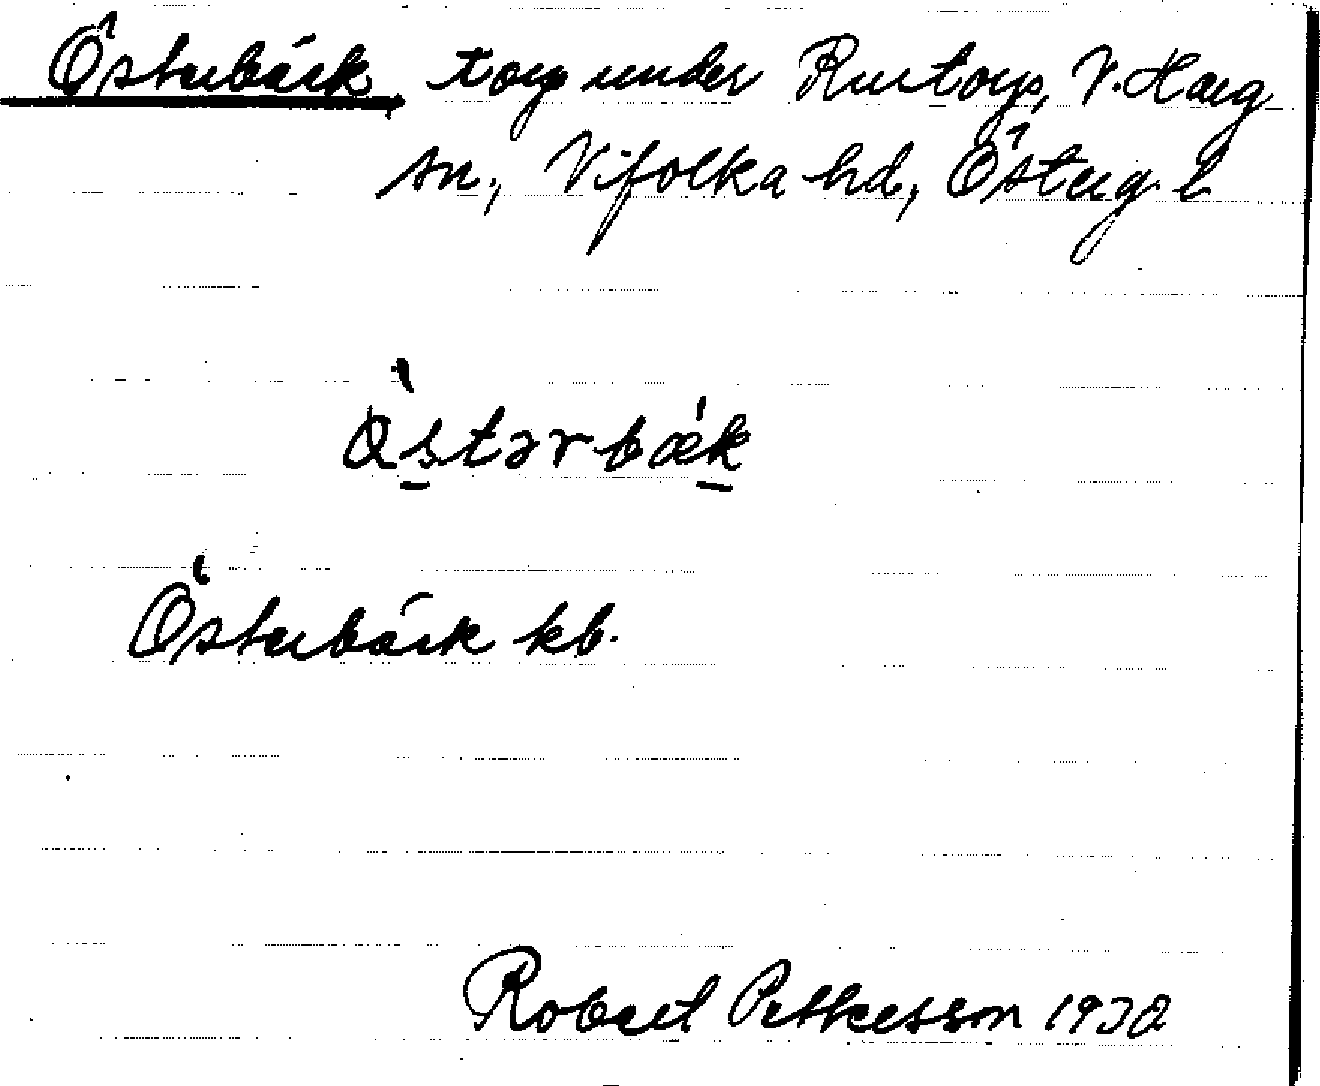 Österbäck, torp under Rustorp, V. Harg
sn, Vifolka hd, Österg. l
Östərbæk
Österbäck kb.
Robert Petterson 1930